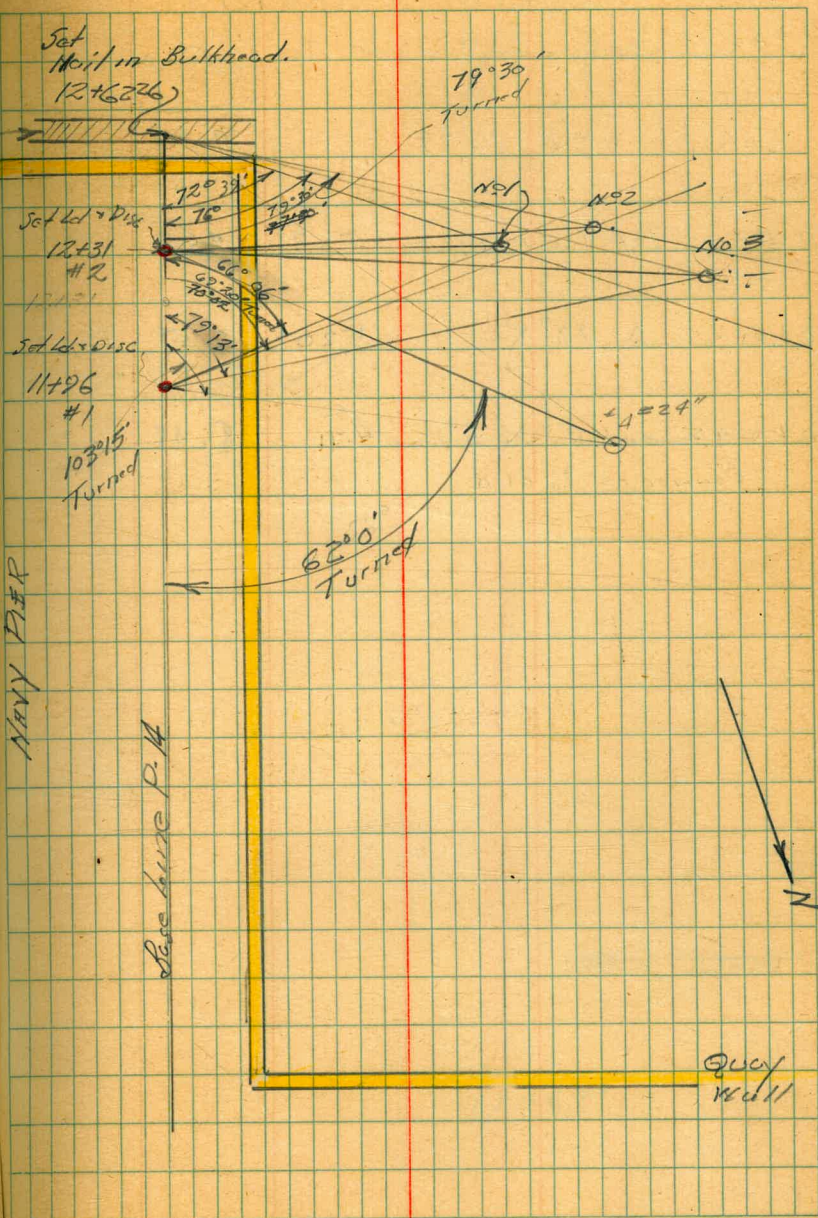 Set
Nail in Bulkhead.
12+6226
79°30'
Turned
72°39'
76°
79°30'
No1
No2
No 3
Set Ld & Disc
12+31
#2
12+31
66° 06'
Turned
79°13'
Set Ld & Disc
11+96
#1
103°15'
Turned
4 = 24"
62°0'
Turned
NAVY PIER
Base Line P-14
N
Quay
Wall